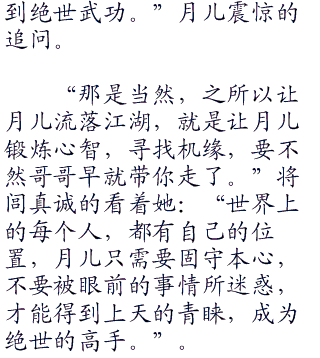 到绝世武功。”月儿震惊的
追问。
“那是当然，之所以让
月儿流落江湖，就是让月儿
锻炼心智，寻找机缘，要不
然哥哥早就带你走了。”将
闾真诚的看着她：“世界上
的每个人，都有自己的位
置，月儿只需要固守本心，
不要被眼前的事情所迷惑，
才能得到上天的青睐，成为
绝世的高手。”。